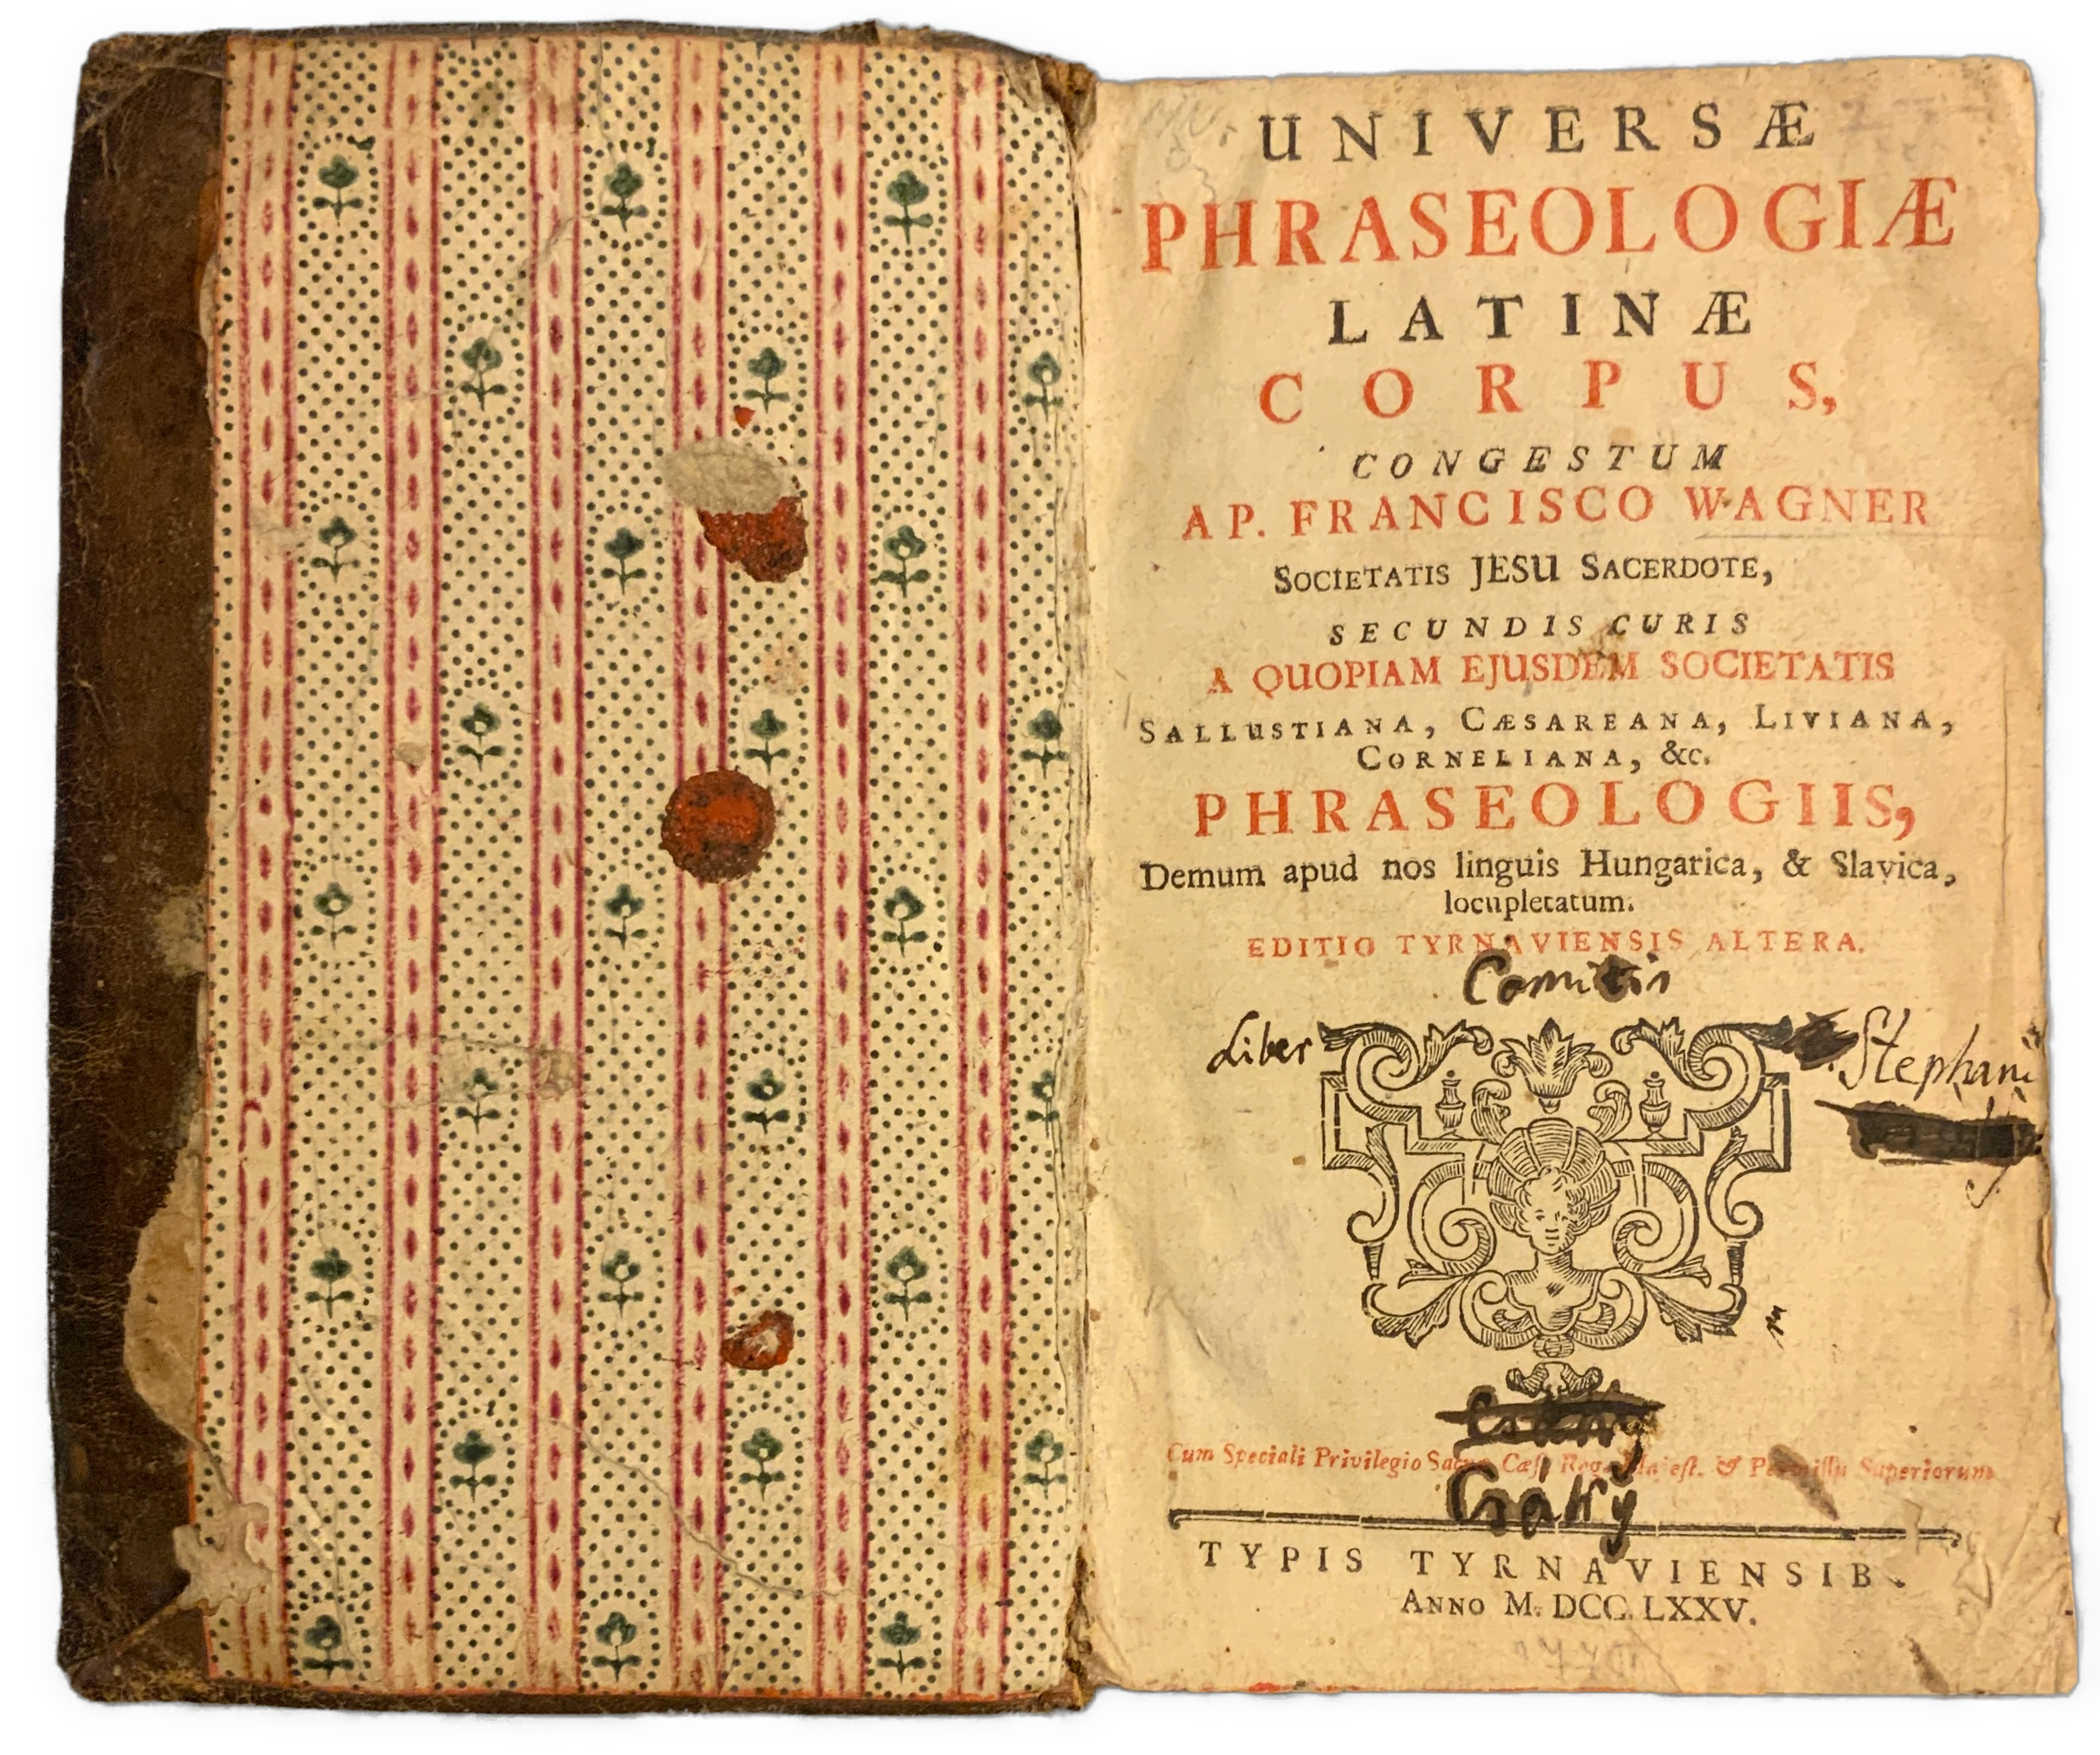 UNIVERSÆ
PHRASEOLOGIÆ
LATINÆ
CORPUS,
CONGESTUM
A P. FRANCISCO WAGNER
SOCIETATIS JESU SACERDOTE,
SECUNDIS CURIS
A QUOPIAM EJUSDEM SOCIETATIS
SALLUSTIANA, CÆSAREANA, LIVIANA,
CORNELIANA, &c.
PHRASEOLOGIIS,
Demum apud nos linguis Hungarica, & Slavica,
locupletatum.
EDITIO TYRNAVIENSIS ALTERA.
Comitis
Liber
Stephani
Cum Speciali Privilegio Sacræ Cæs. Reg. Majest. & Permissu Superiorum
Csáky
TYPIS TYRNAVIENSIB.
ANNO M. DCC. LXXV.